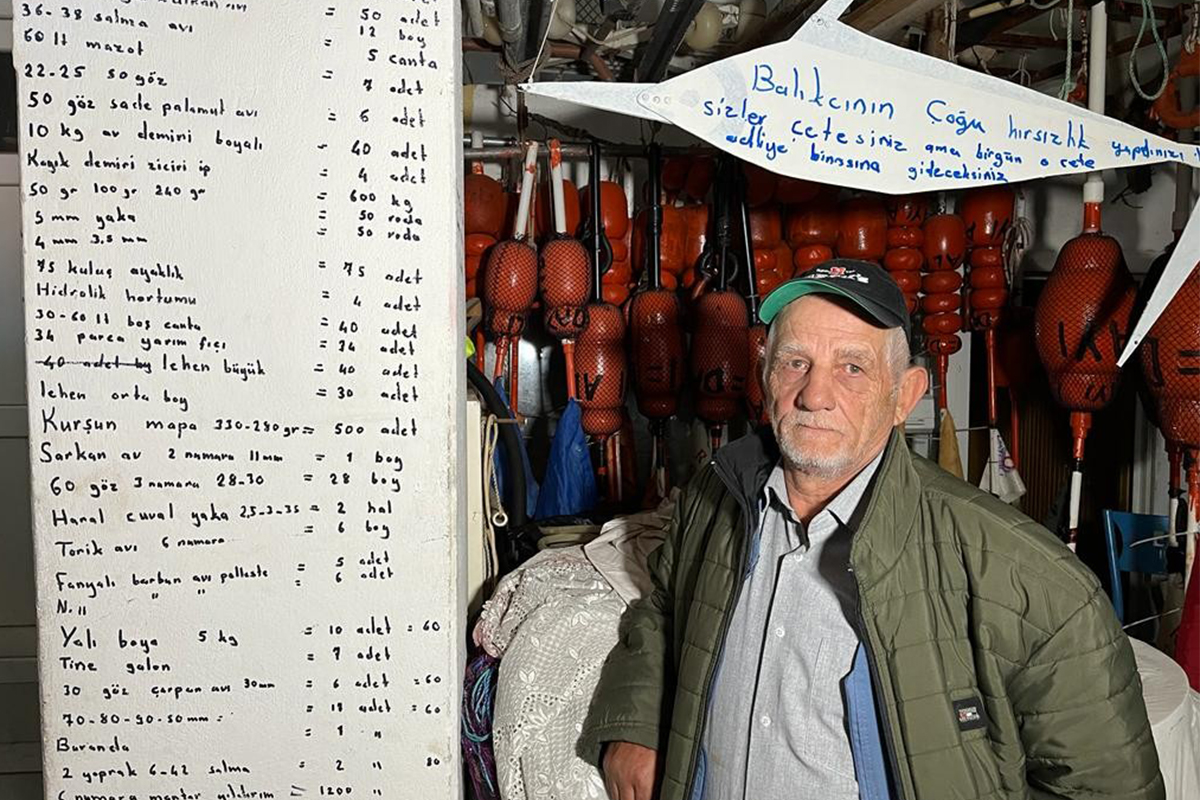 36-38 salma avı = 50 adet
12 boy
60 lt mazot = 5 canta
22-25 50 göz = 7 adet
50 göz sade palamut avı = 6 adet
10 kg av demiri boyalı = 40 adet
Kayık demiri ziciri ip = 4 adet
50 gr 100 gr 240 gr = 600 kg
5 mm yaka = 50 roda
4 mm 3,5 mm = 50 roda
75 kuluç ayaklık = 75 adet
Hidrolik hortumu = 4 adet
30-60 lt boş canta = 40 adet
34 parca yarım fıçı = 34 adet
40 adet boy lehen büyük = 40 adet
lehen orta boy = 30 adet
Kurşun mapa 330-280 gr = 500 adet
Sarkan av 2 numara 11 mm = 1 boy
60 göz 3 numara 28-30 = 28 boy
Haral cuval yaka 2,5-3-35 = 2 hal
= 6 boy
Torik avı 6 numara
= 5 adet
Fanyalı barbun avı pallaste = 6 adet
N. " " "
Yalı boya 5 kg = 10 adet = 60
Tine galon = 7 adet
30 göz çarpan avı 30mm = 6 adet = 60
70-80-90-50mm = = 18 adet = 60
Buranda = 1 "
2 yoprak 6-42 salma = 2 " 80
6 numara mantar yıldırım = 1200 "
Balıkcının Çoğu hırsızlık yapdınızı
sizler çetesiniz ama birgün o çete
adliye binasına gideceksiniz